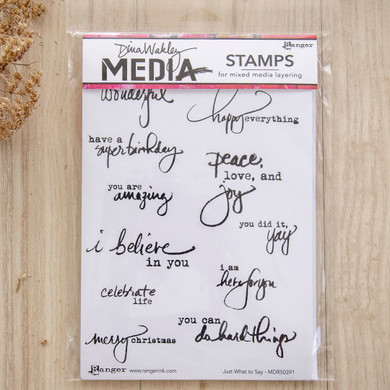 Dina Wakley
MEDIA
STAMPS
for mixed media layering
Ranger
wonderful
happy everything
have a
super birthday
peace,
love, and
joy
you are
amazing
you did it,
yay
i believe
in you
i am
here for you
celebrate
life
you can
do hard things
merry christmas
Ranger
www.rangerink.com
Just What to Say - MDR50391